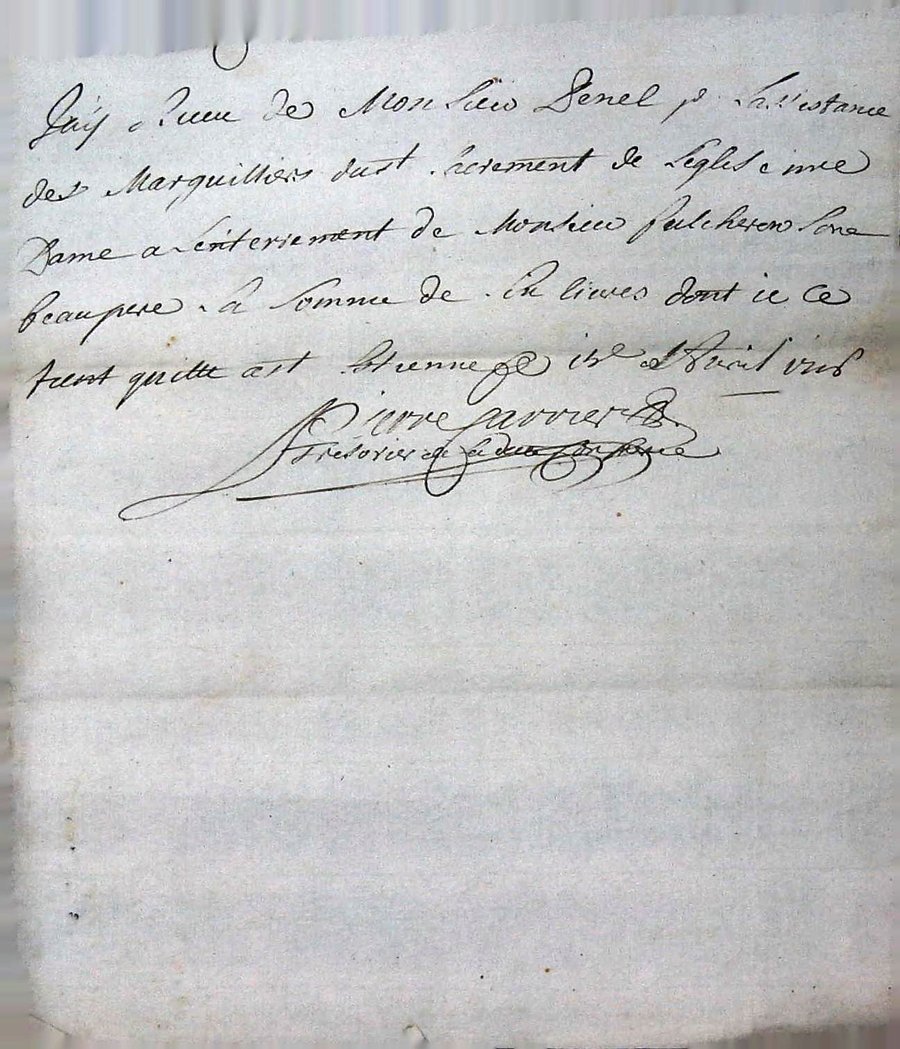 Jay Receu de Monsieur Penel p. Lasistance
des Marguilliers dust. sacrement de Leglise nre
Dame a Lenterrement de Monsieur fulcheron Sone
beaupere La Somme de livres dont je Le
tient quitte a st Etienne ce Avril
Pierre Garnier
Tresorier de Ladte Confrerie